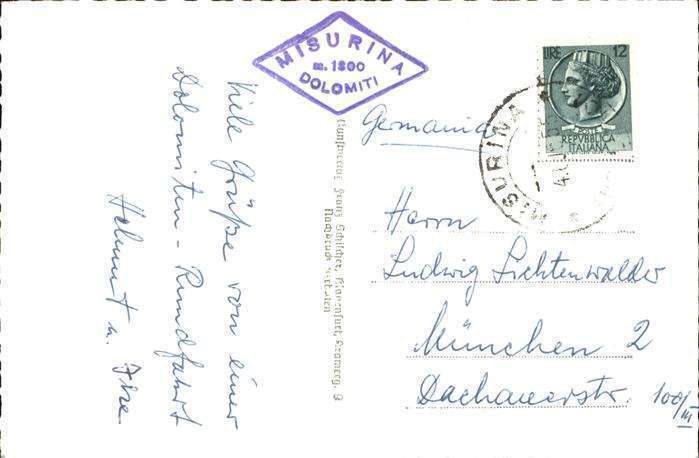 MISURINA
m. 1800
DOLOMITI
LIRE 12
POSTE
REPVBBLICA
ITALIANA
MISURINA
Viele Grüße von einer
Dolomiten - Rundfahrt
Helmut u. Ilse.
Kunstverlag Franz Schilcher, Klagenfurt, Kramerg. 9
Nachdruck verboten
Germania
Herrn
Ludwig Lichtenwalder
München 2
Dachauerstr. 100/III